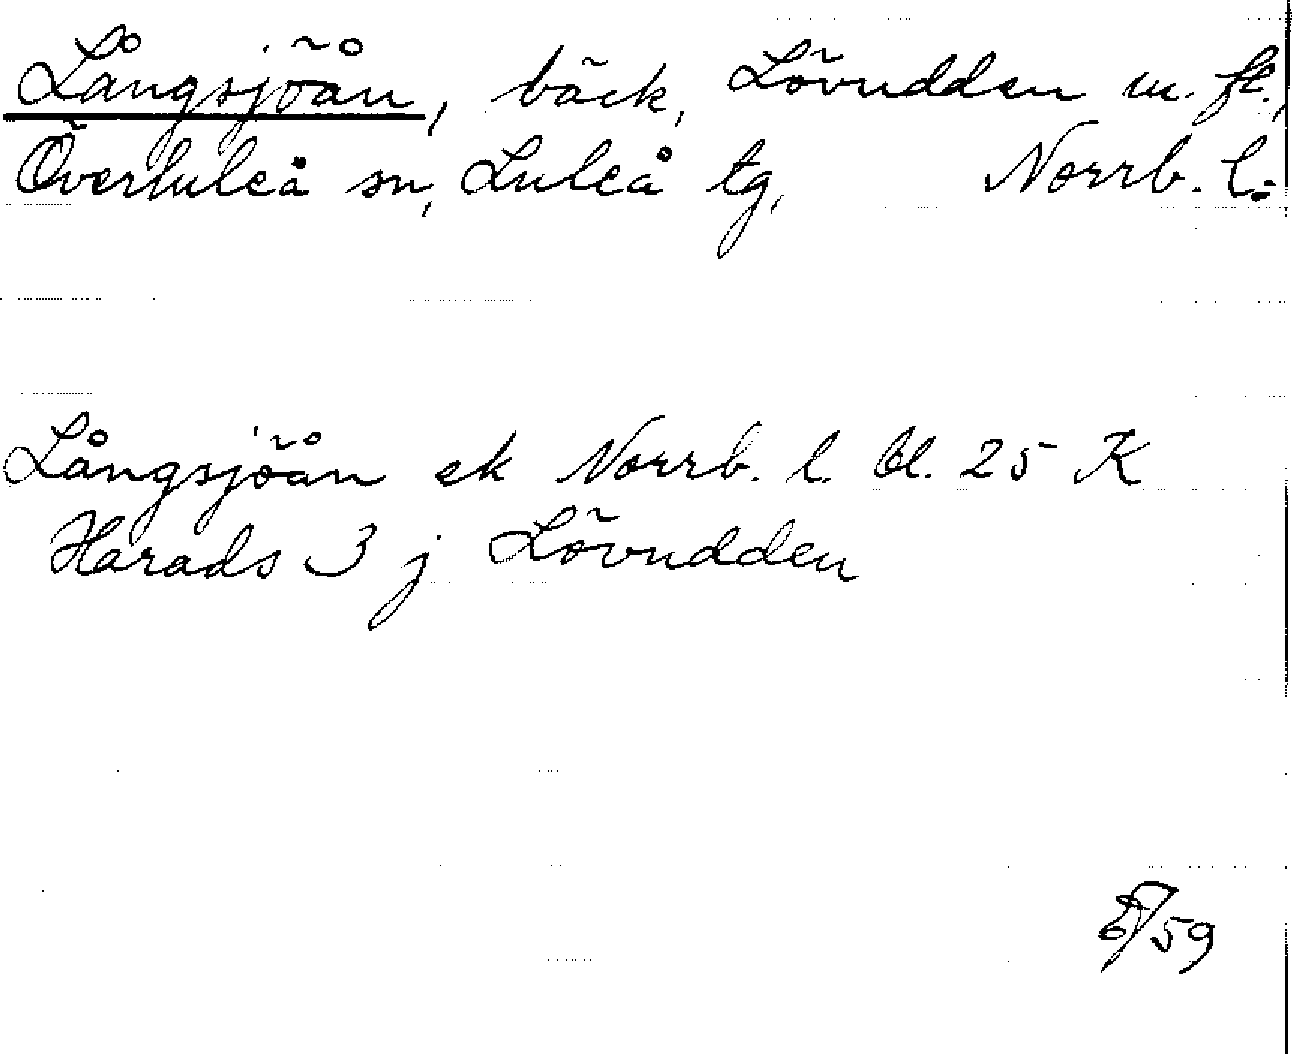 Långsjöån, bäck, Lövudden m. fl.,
Överluleå sn, Luleå tg, Norrb. l.
Långsjöån ek Norrb. l. bl. 25 K
Harads 3 j Lövudden
/59